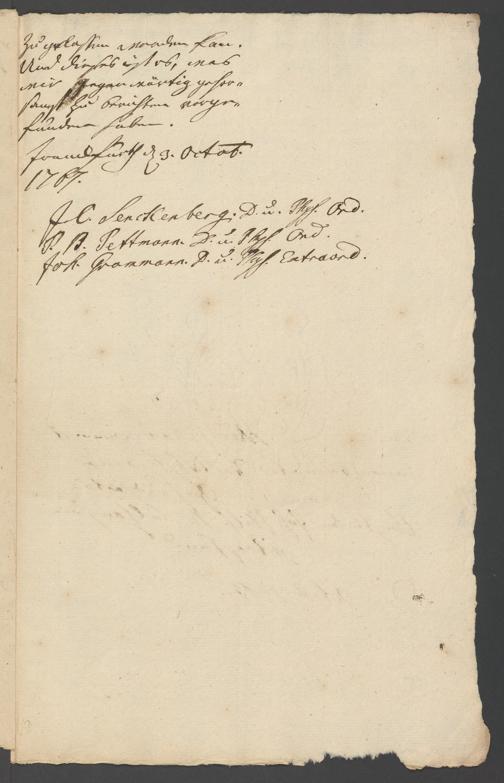 zugelassen werden kan.
Und dieses ist es, was
wir gegenwärtig gehor-
samst zu berichten vorge-
funden haben.
Franckfurth d. 3. Octob.
1767.
J. C. Senckenberg. D. u. Phys. Ord.
P. B. Pettmann. D. u. Phys. Ord.
Joh. Grammann. D. u. Phys. Extraord.